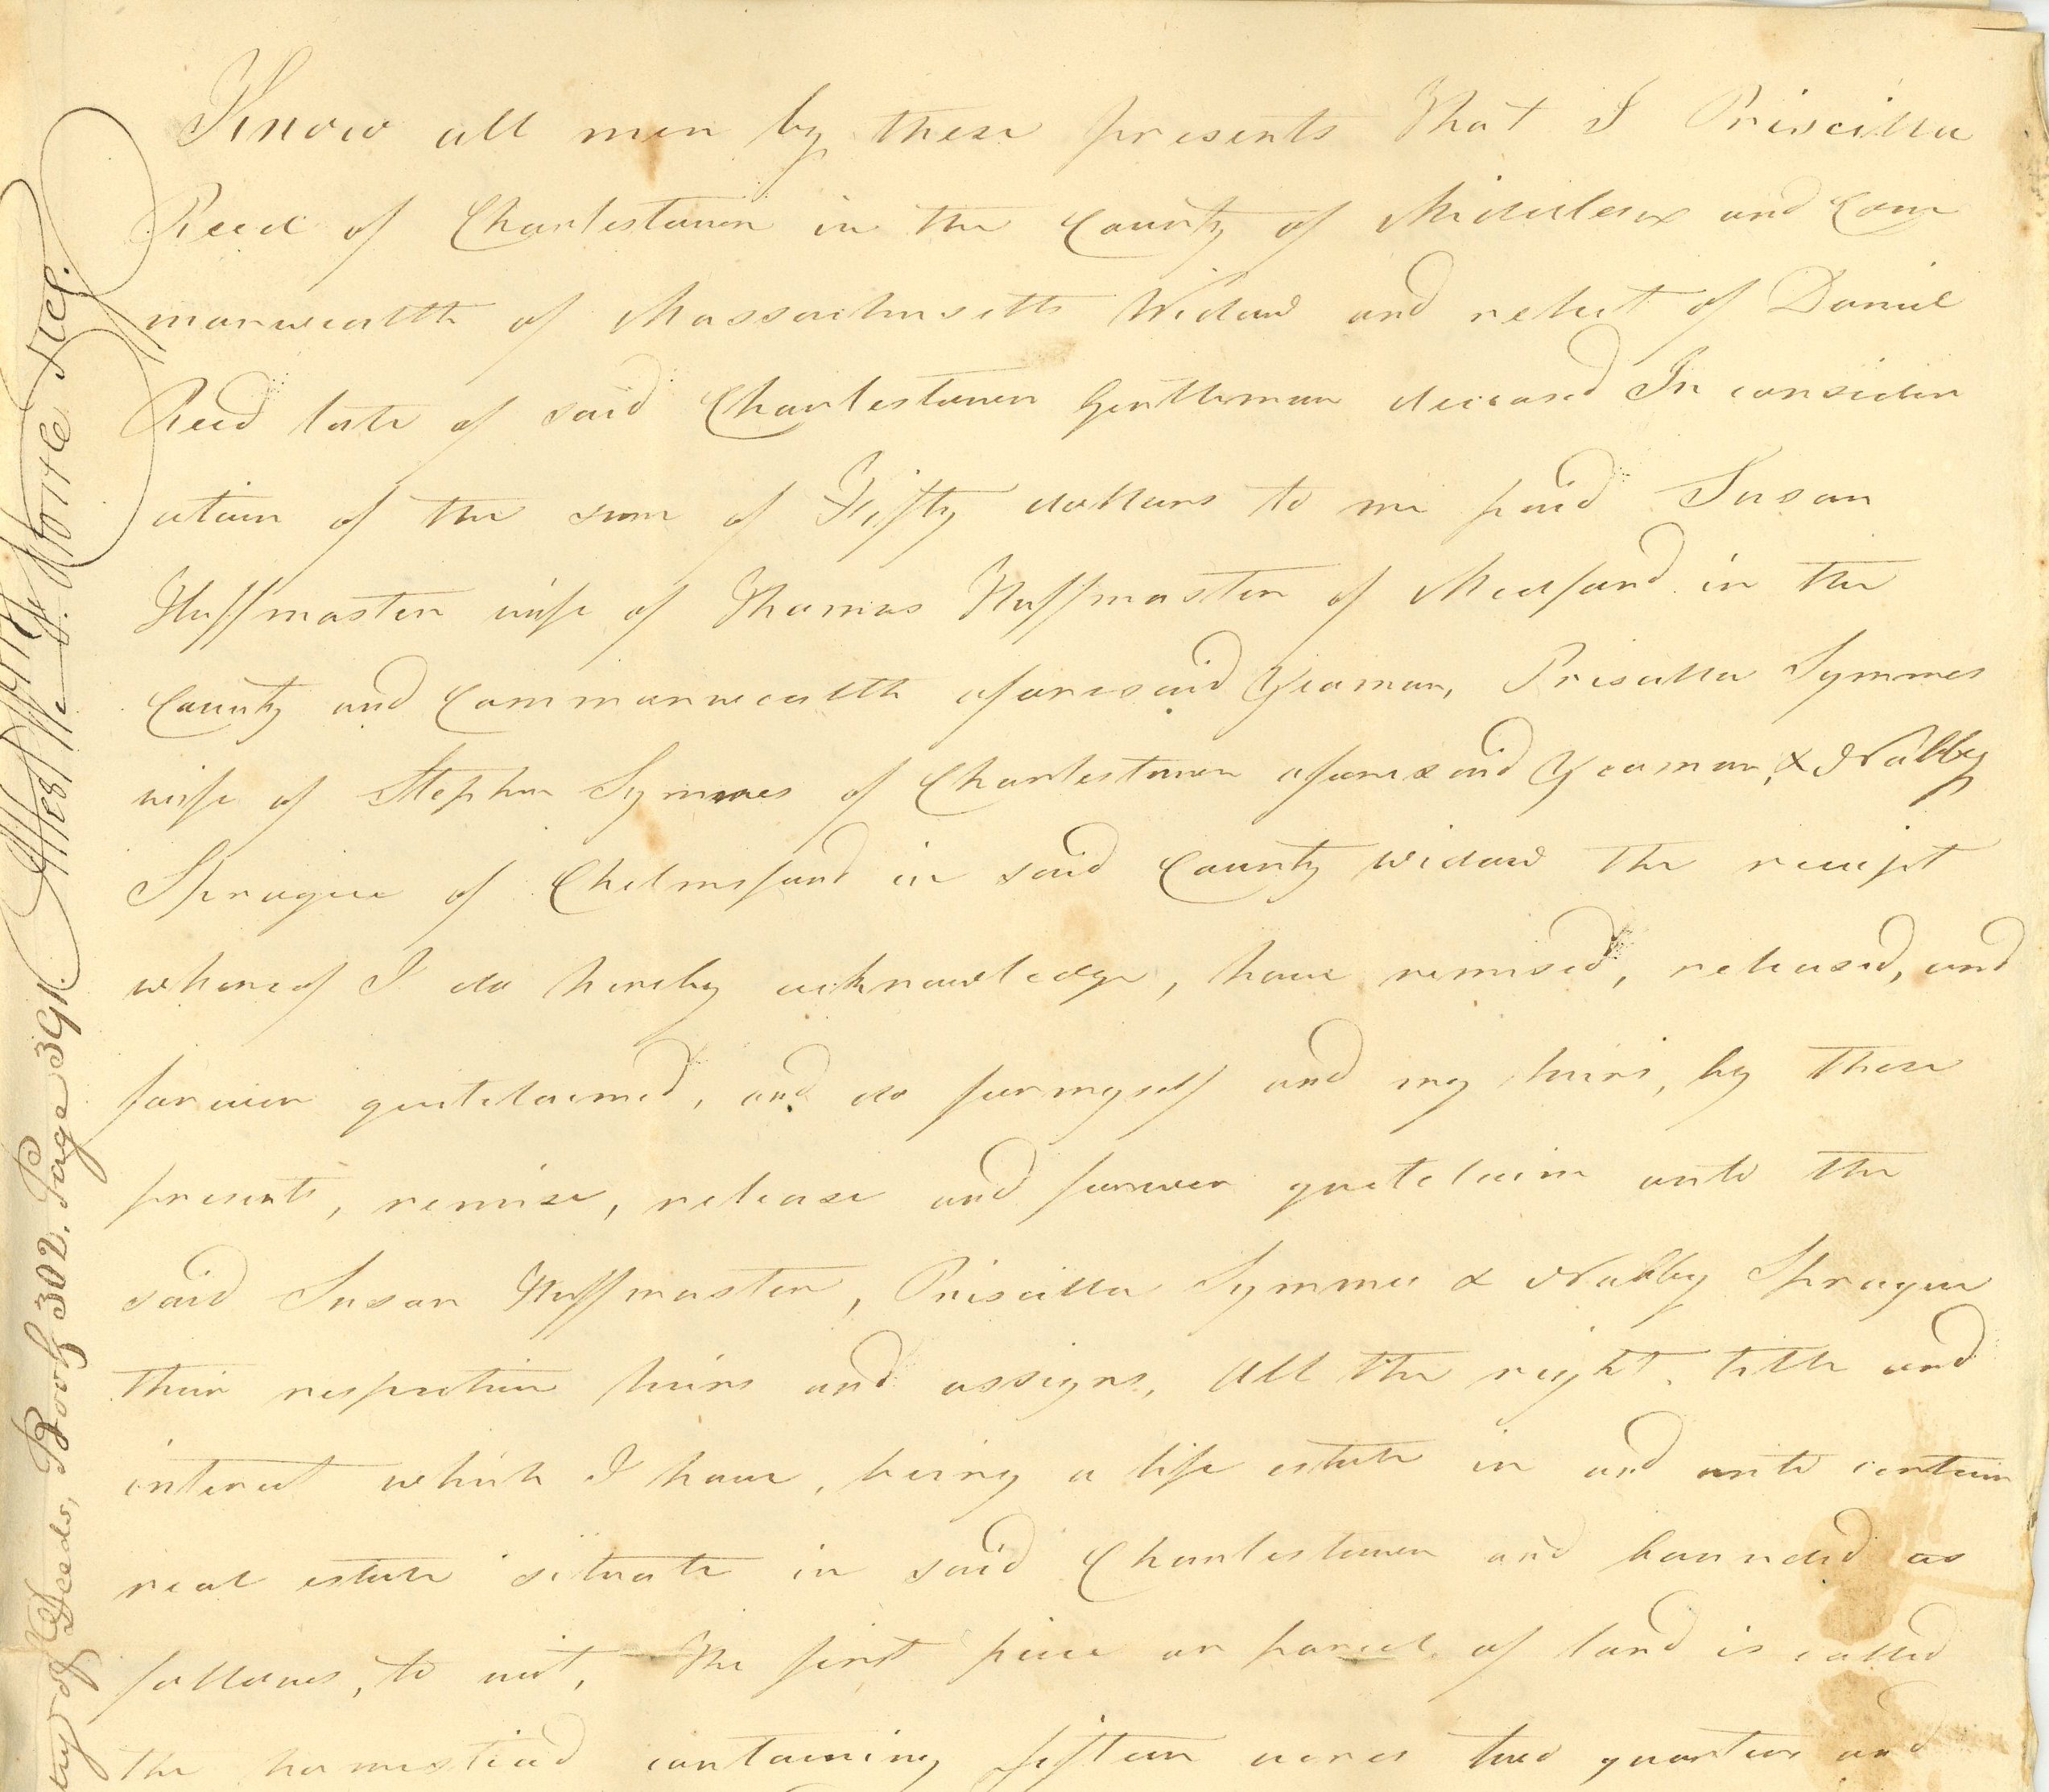 Know all men by these presents That I Priscilla
Reed of Charlestown in the County of Middlesex and Com
monwealth of Massachusetts Widow and relict of Daniel
Reed late of said Charlestown Gentleman deceased In consider
ation of the sum of Fifty dollars to me paid Susan
Huffmaster wife of Thomas Huffmaster of Medford in the
County and Commonwealth aforesaid Yeoman, Priscilla Symmes
wife of Stephen Symmes of Charlestown aforesaid Yeoman, & Nabby
Sprague of Chelmsford in said County widow the receipt
whereof I do hereby acknowledge, have remised, released, and
forever quitclaimed, and do for myself and my heirs, by these
presents, remise, release and forever quitclaim unto the
said Susan Huffmaster, Priscilla Symmes & Nabby Sprague
their respective heirs and assigns, All the right, title and
interest which I have, being a life estate in and unto certain
real estate situate in said Charlestown and bounded as
follows, to wit, The first piece or parcel of land is called
the homestead containing fifteen acres two quarters and
of Deeds, Book 302. Page 391. Attest Wm. F. Stone Reg.